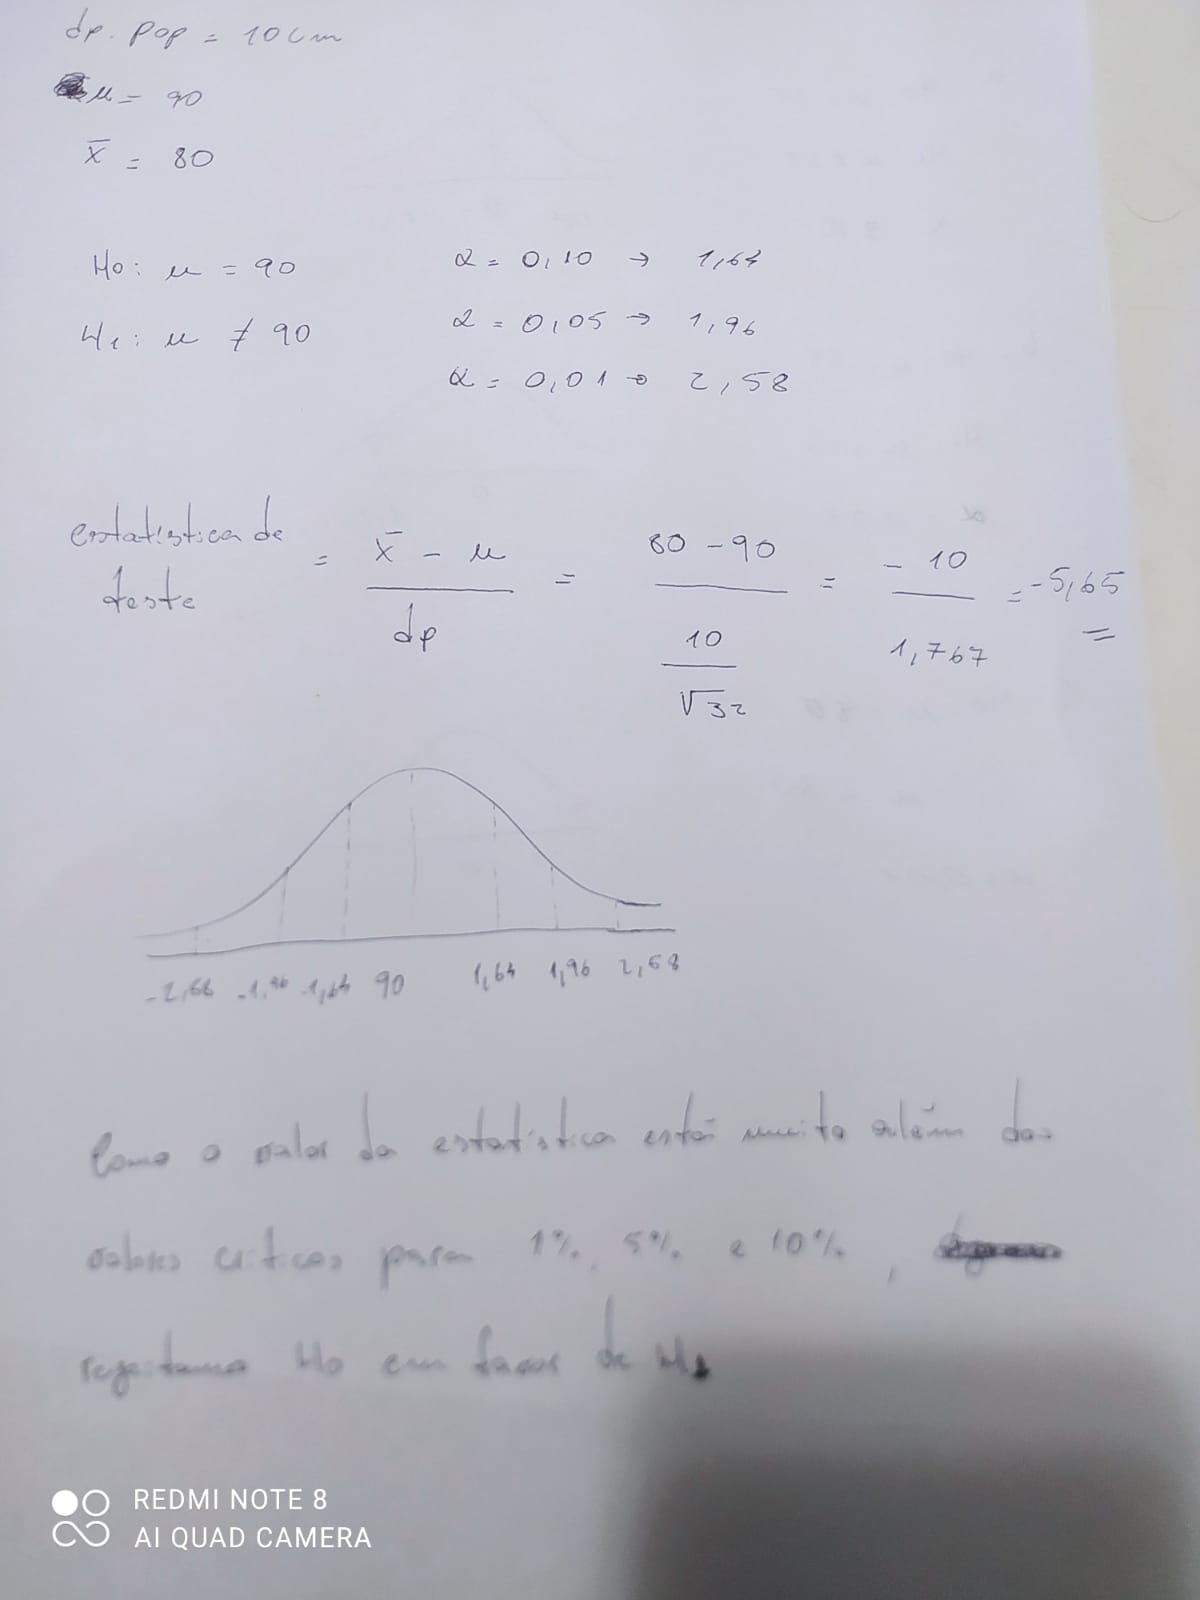 dp. pop = 10 cm
μ = 90
x̄ = 80
H0: μ = 90 α = 0,10 → 1,64
H1: μ ≠ 90 α = 0,05 → 1,96
α = 0,01 → 2,58
estatística de teste = x̄ - μ / dp = 80 - 90 / 10 / √32 = - 10 / 1,767 = -5,65
-2,58 -1,96 -1,64 90 1,64 1,96 2,58
Como o valor da estatística está muito além dos
valores críticos para 1%, 5% e 10%,
regeitamos H0 em favor de H1
REDMI NOTE 8
AI QUAD CAMERA